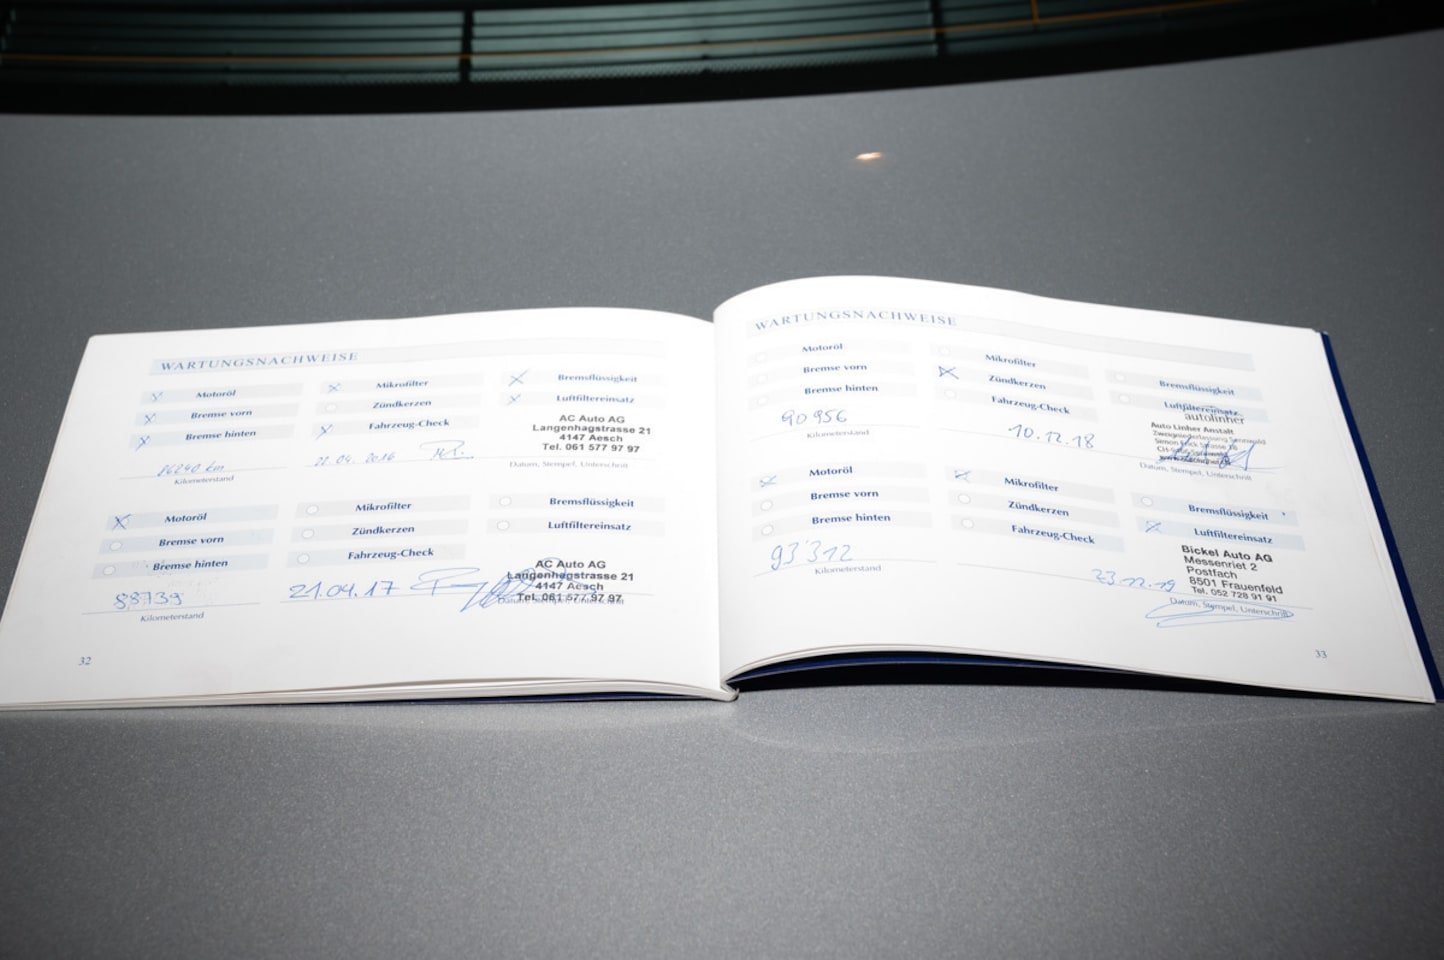 WARTUNGSNACHWEISE
Motoröl
Mikrofilter
Bremsflüssigkeit
Bremse vorn
Zündkerzen
Luftfiltereinsatz
Bremse hinten
Fahrzeug-Check
AC Auto AG
Langenhagstrasse 21
4147 Aesch
Tel. 061 577 97 97
86240 km
04. 2016
Kilometerstand
Datum, Stempel, Unterschrift
Motoröl
Mikrofilter
Bremsflüssigkeit
Bremse vorn
Zündkerzen
Luftfiltereinsatz
Bremse hinten
Fahrzeug-Check
AC Auto AG
Langenhagstrasse 21
4147 Aesch
Tel. 061 577 97 97
88739
21.04.17
Kilometerstand
Datum, Stempel, Unterschrift
32
WARTUNGSNACHWEISE
Motoröl
Mikrofilter
Bremsflüssigkeit
Bremse vorn
Zündkerzen
Luftfiltereinsatz
Bremse hinten
Fahrzeug-Check
autolinher
Auto Linher Anstalt
Zweigniederlassung Sennwald
90956
10.12.18
Kilometerstand
Datum, Stempel, Unterschrift
Motoröl
Mikrofilter
Bremsflüssigkeit
Bremse vorn
Zündkerzen
Luftfiltereinsatz
Bremse hinten
Fahrzeug-Check
Bickel Auto AG
Messenriet 2
Postfach
8501 Frauenfeld
Tel. 052 728 91 91
93'312
23.12.19
Kilometerstand
Datum, Stempel, Unterschrift
33